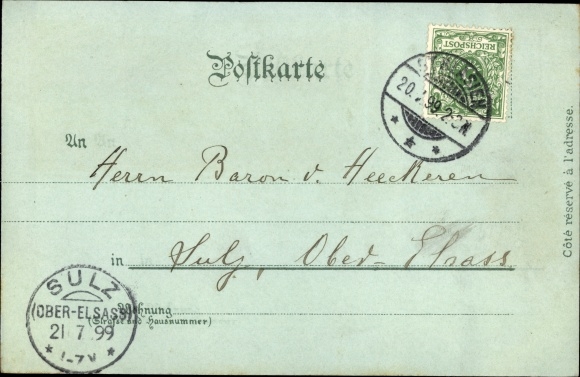 REICHSPOST
20.7.99.2-3N
Postkarte
An
Herrn Baron v. Heeckeren
in Sulz, Ober-Elsass
Wohnung
(Straße und Hausnummer)
SULZ
(OBER-ELSASS)
21 7 99
* 1-2N *
Côté réservé à l'adresse.